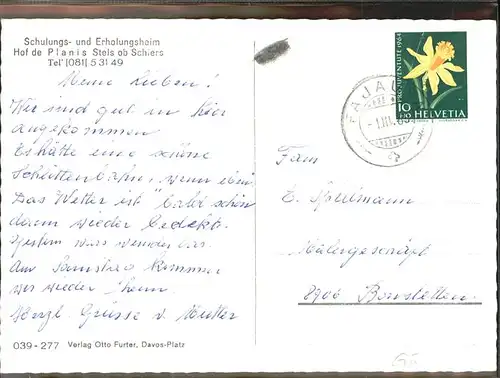 Schulungs- und Erholungsheim
Hof de Planis Stels ob Schiers
Tel (081) 5 31 49
Meine Lieben!
Wir sind gut in hier
angekommen
Es hätte eine schöne
Schlittenbahn, wenn
Das Wetter ist bald schön
dann wieder bedekt.
Gestern wars wunderbar.
Am Samstag kommen
wir wieder heim.
Herzl. Grüsse v. Mutter
039-277 Verlag Otto Furter, Davos-Platz
PRO JUVENTUTE 1964
10
+10
HELVETIA
FAJAU
-1.III.65
Fam
E. Spillmann
Malergeschäft
8906 Bonstetten.